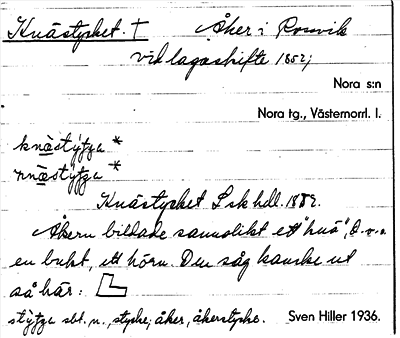 Knästycket. † Åker i Rossvik
vid lagaskifte 1852;
Nora s:n
Nora tg., Västernorrl. l.
knæ̀stýʒʒa *
nnæ̀stýʒʒa *
Knästycket Lsk hdl. 1882.
Åkern bildade sannolikt ett "knä", d.v.s.
en bukt, ett hörn. Den såg kanske ut
så här:
stýʒʒa sbt. n., stycke; åker, åkerstycke. Sven Hiller 1936.